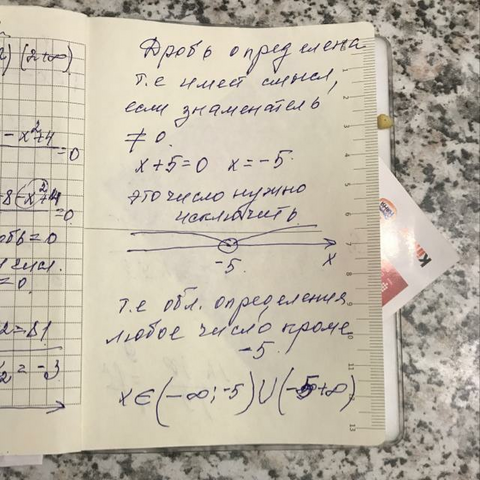 2) (2+∞)
- x²+4
= 0
-8-x²+4
= 0
обь = 0
числ.
= 0.
2 = 81
x₂ = -3
Дробь определена
т.е имеет смысл,
если знаменатель
≠ 0.
x+5=0 x=-5.
это число нужно
исключить
-5. x
т.е обл. определения
любое число кроме
-5.
x∈(-∞;-5)∪(-5+∞)
1
2
3
4
5
6
7
8
9
10
11
12
13